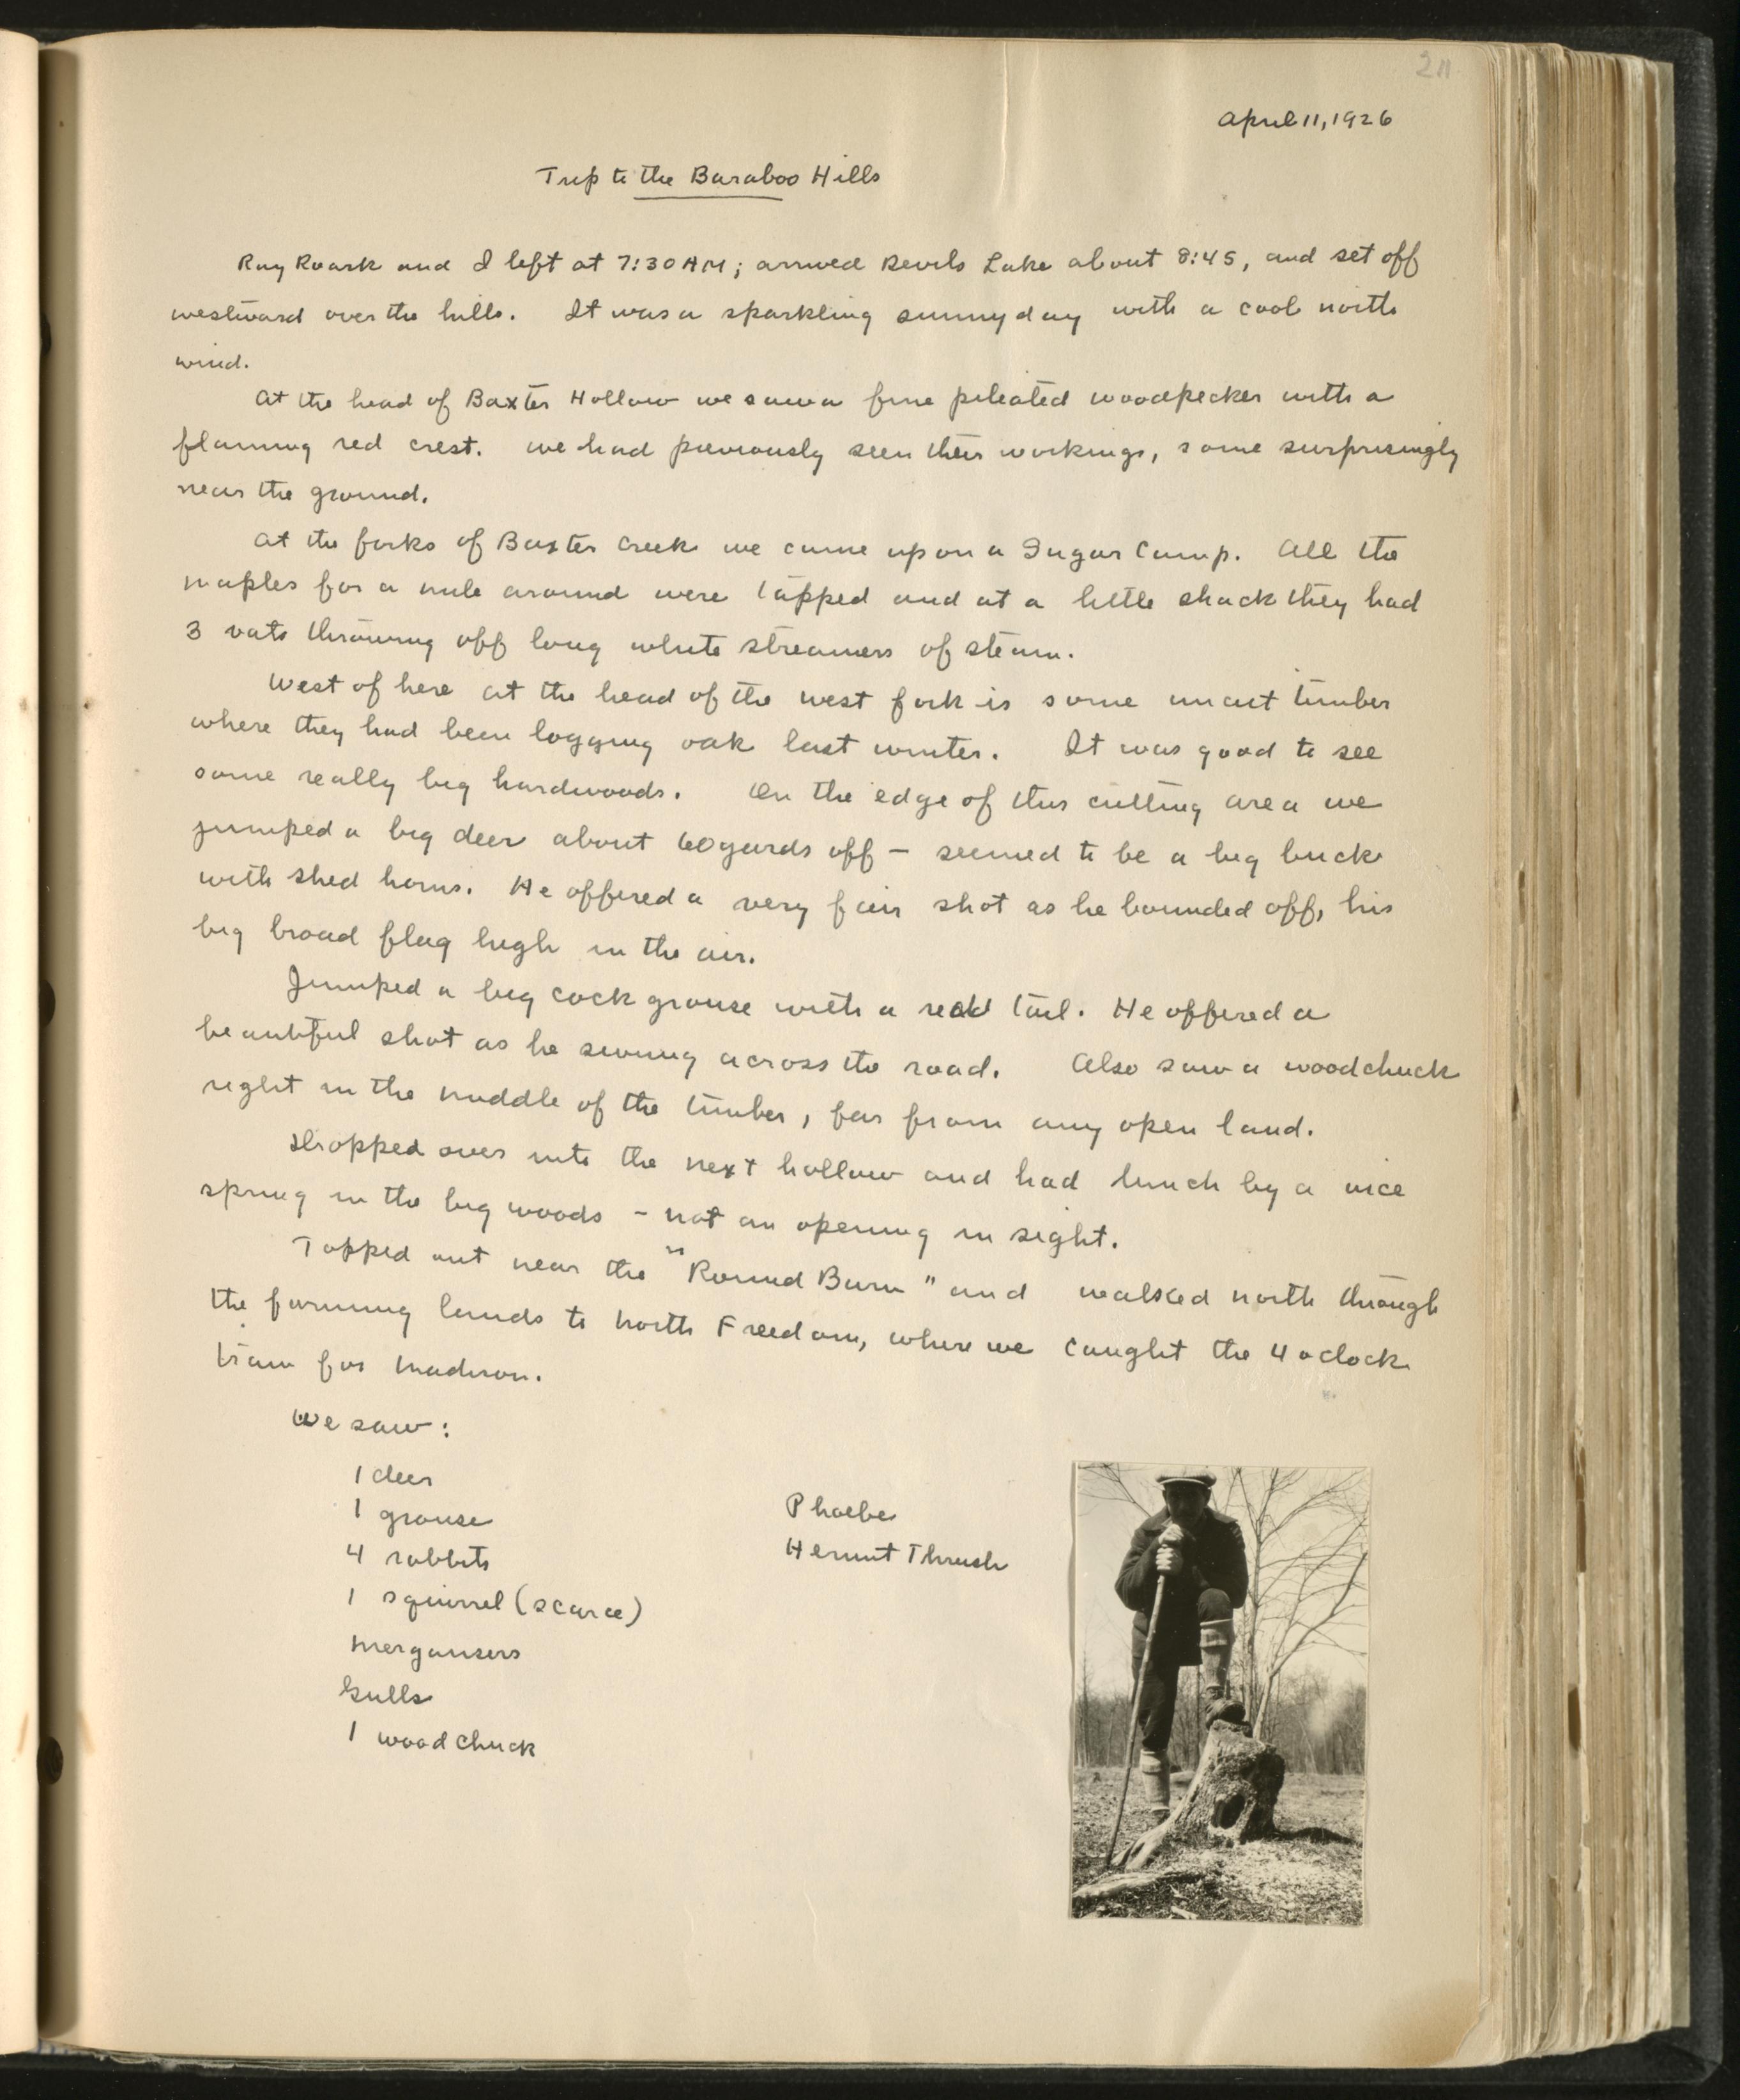 211
April 11, 1926
Trip to the Baraboo Hills
Ray Roark and I left at 7:30 AM; arrived Devils Lake about 8:45, and set off
westward over the hills. It was a sparkling sunny day with a cool north
wind.
At the head of Baxter Hollow we saw a fine pileated woodpecker with a
flaming red crest. We had previously seen their workings, some surprisingly
near the ground.
At the forks of Baxter Creek we came upon a Sugar Camp. All the
maples for a mile around were tapped and at a little shack they had
3 vats throwing off long white streamers of steam.
West of here at the head of the west fork is some uncut timber
where they had been logging oak last winter. It was good to see
some really big hardwoods. On the edge of this cutting area we
jumped a big deer about 60 yards off — seemed to be a big buck
with shed horns. He offered a very fair shot as he bounded off, his
big broad flag high in the air.
Jumped a big cock grouse with a red tail. He offered a
beautiful shot as he swung across the road. Also saw a woodchuck
right in the middle of the timber, far from any open land.
Dropped over into the next hollow and had lunch by a nice
spring in the big woods - not an opening in sight.
Topped out near the "Round Barn" and walked north through
the farming lands to North Freedom, where we caught the 4 oclock
train for Madison.
We saw:
1 deer
1 grouse
4 rabbits
1 squirrel (scarce)
Mergansers
Gulls
1 woodchuck
Phoebe
Hermit Thrush